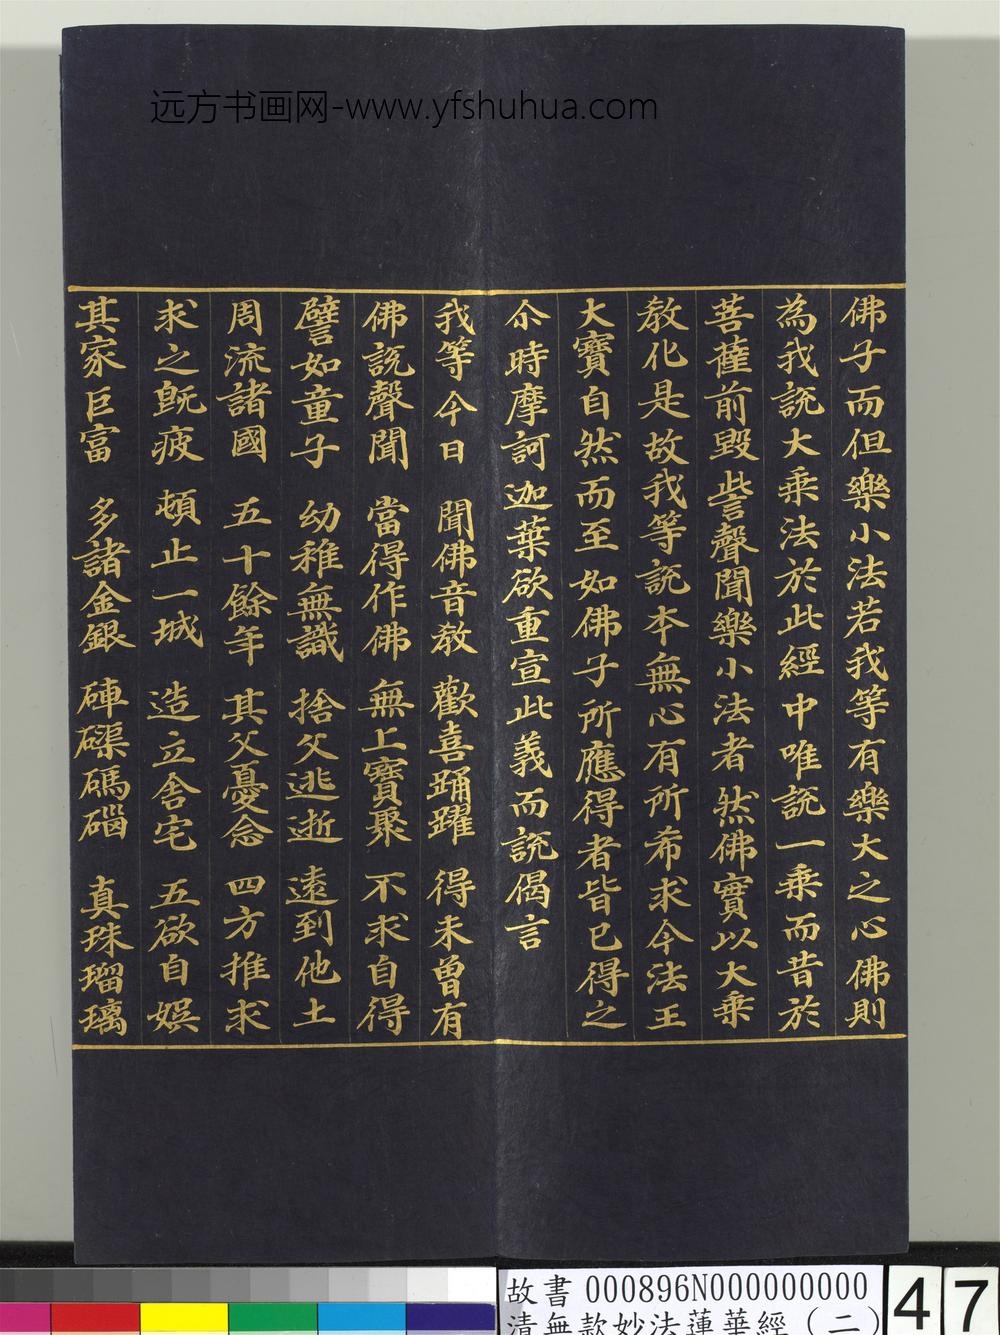 远方书画网-www.yfshuhua.com
佛子而但樂小法若我等有樂大之心佛則
為我説大乘法於此經中唯説一乘而昔於
菩薩前毀訾聲聞樂小法者然佛實以大乘
教化是故我等説本無心有所希求今法王
大寶自然而至如佛子所應得者皆已得之
尒時摩訶迦葉欲重宣此義而説偈言
我等今日 聞佛音教 歡喜踊躍 得未曾有
佛説聲聞 當得作佛 無上寶聚 不求自得
譬如童子 幼稚無識 捨父逃逝 遠到他土
周流諸國 五十餘年 其父憂念 四方推求
求之既疲 頓止一城 造立舍宅 五欲自娛
其家巨富 多諸金銀 硨磲碼碯 真珠瑠璃
故書 000896N000000000
清無款妙法蓮華經(二)
47